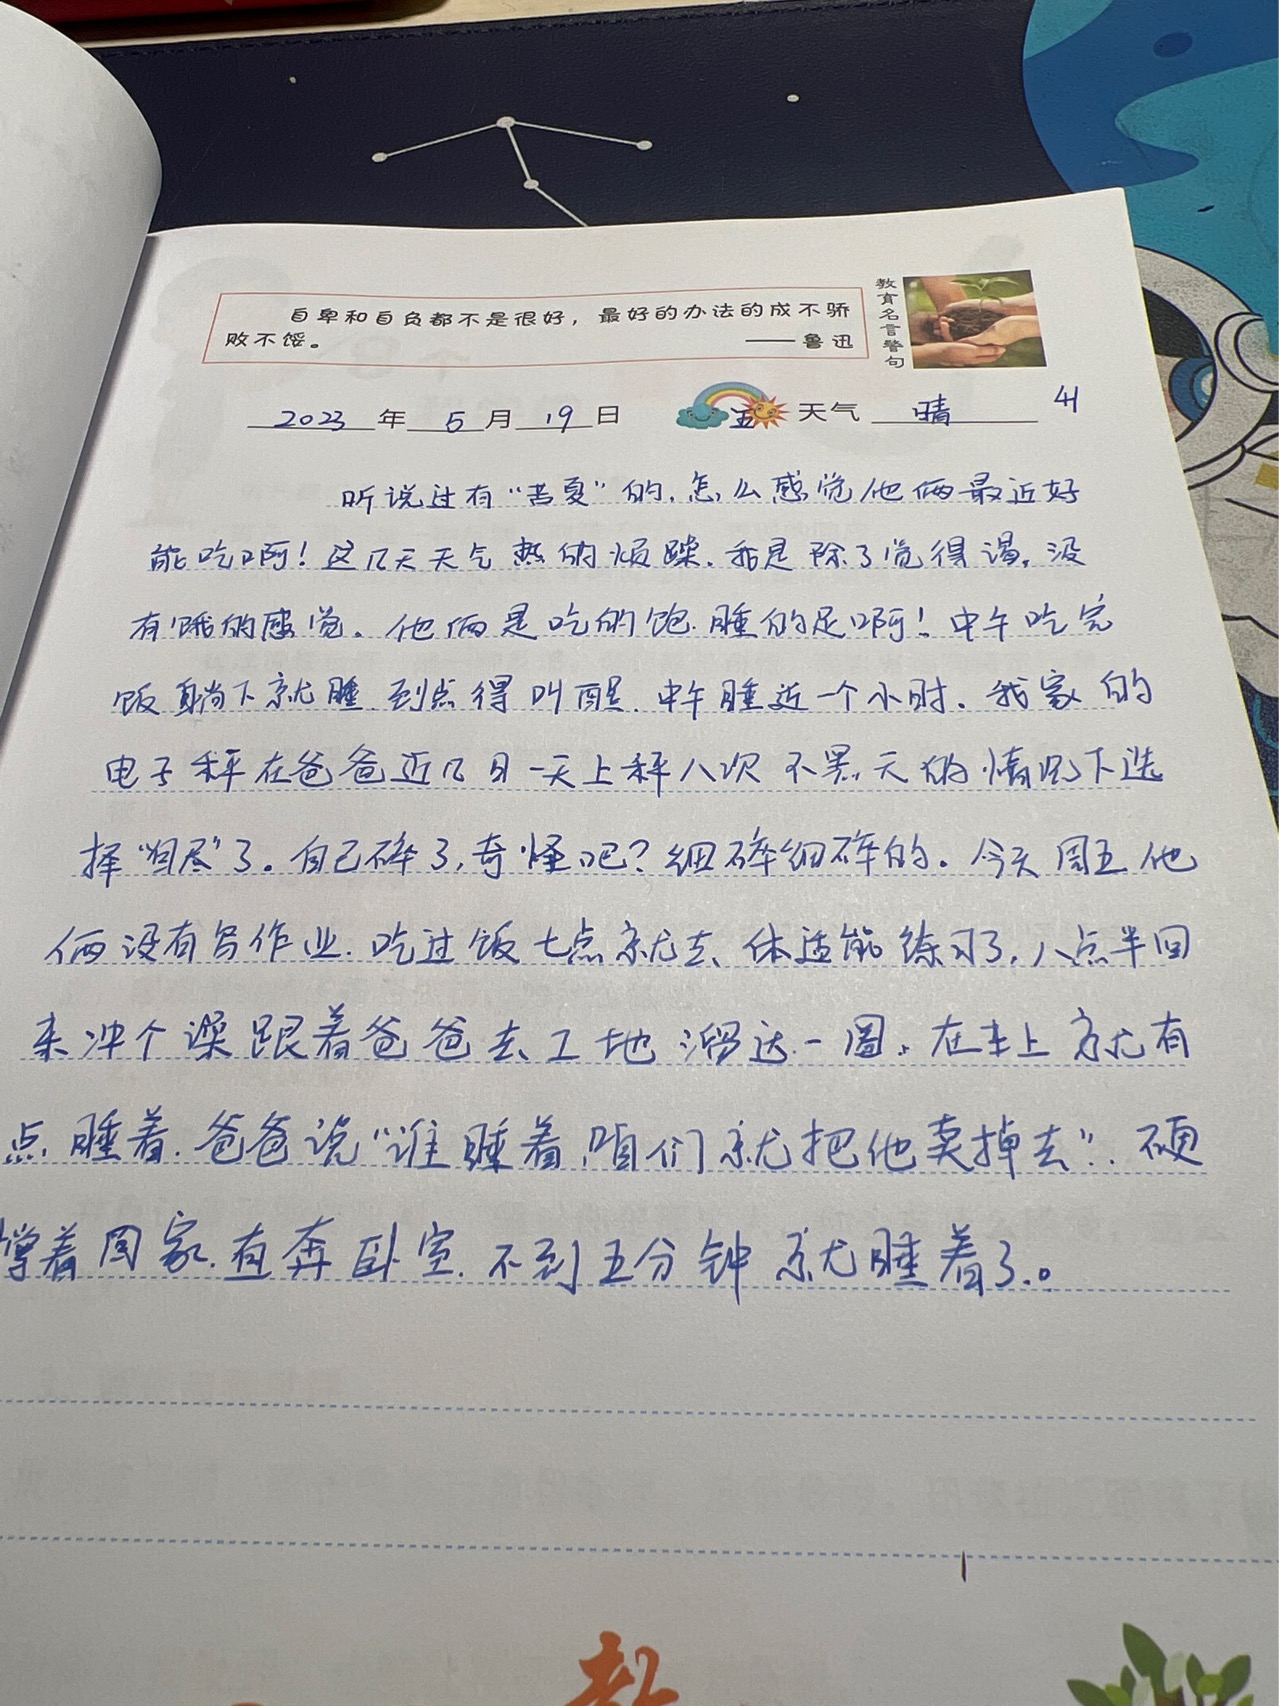 自卑和自负都不是很好，最好的办法的成不骄
败不馁。 ——鲁迅
教育名言警句
2023年5月19日 五 天气 晴 41
听说过有“苦夏”的，怎么感觉他俩最近好
能吃啊！这几天天气热的烦躁，我是除了觉得渴，没
有饿的感觉。他俩是吃的饱，睡的足啊！中午吃完
饭躺下就睡，到点得叫醒，中午睡近一个小时。我家的
电子秤在爸爸近几日一天上秤八次 不 的情况下选
择“自尽”了。自己碎了，奇怪吧？细碎细碎的。今天周五他
俩没有写作业，吃过饭七点就去体适能练习了，八点半回
来冲个澡跟着爸爸去工地溜达一圈，在车上就有
点睡着，爸爸说“谁睡着，咱们就把他卖掉去”，硬
撑着回家，直奔卧室，不到五分钟就睡着了。